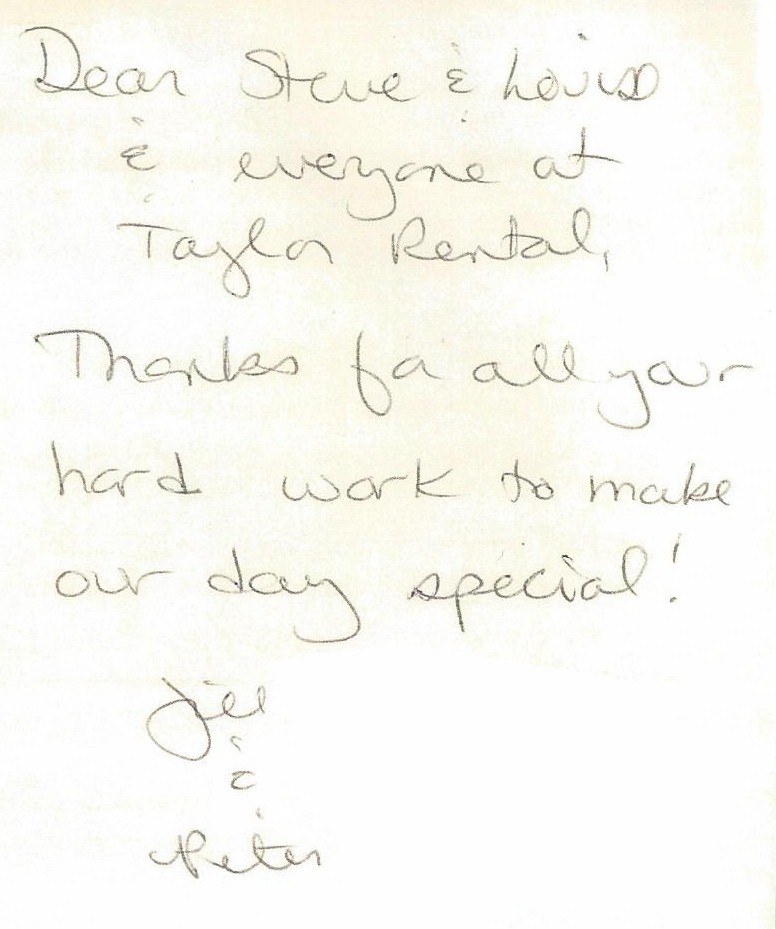 Dear Steve & Louise
& everyone at
Taylor Rental,
Thanks for all your
hard work to make
our day special!
Jill
&
Peter